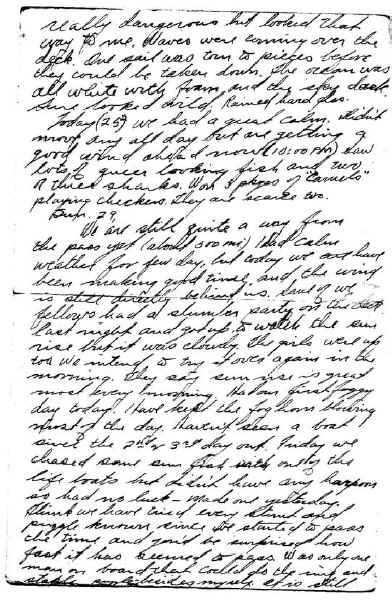 really dangerous but looked that
way to me. Waves were coming over the
deck. One sail was torn to pieces before
they could be taken down. The ocean was
all white with foam, and the sky dark.
Sure looked wild. Rained hard also.
Today (25) we had a great calm. Didn't
move any all day but are getting a
good wind ahead now (10:00 PM) Saw
lots of queer looking fish and two
or three sharks. Won 3 pkgs of "Camels"
playing checkers. They are scarce too.
29
We are still quite a way from
the pass yet (about 300 mi) Had calm
weather for few day, but today we are have
been making good time, and the wind
is still directly behind us. Some of we
fellows had a slumber party on the deck
last night and got up to watch the sun
rise but it was cloudy. The girls were up
too. We intend to try it over again in the
morning. They say sun rise is great
most every morning. Had our first foggy
day today. Have kept the fog horn blowing
most of the day. Haven't seen a boat
since the 2nd or 3rd day out. Friday we
chased some sun fish with one of the
life boats but didn't have any harpoons
so had no luck - Made one yesterday.
Think we have tried every stunt and
puzzle known since we started to pass
the time and you'd be surprised how
fast it has seemed to pass. Was only one
man on board that could do the ring and
besides myself. It is still